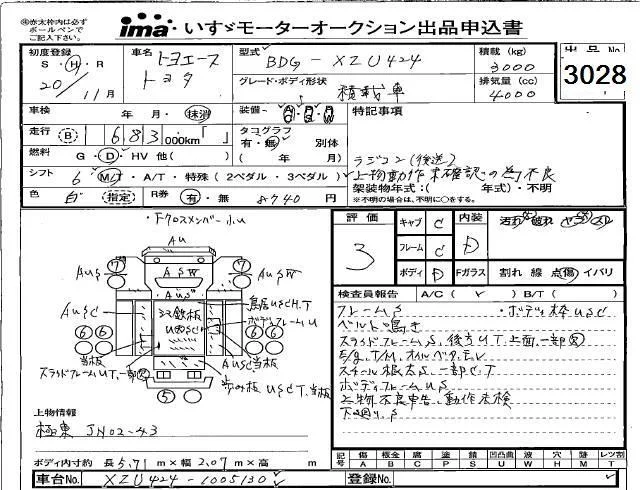 ㊟赤太枠内は必ず
ボールペンで
ご記入下さい。
ima いすゞモーターオークション出品申込書
初度登録 S・H・R 20/11月
車名 トヨエース トヨタ
型式 BDG-XZU424
グレード・ボディ形状 積載車
積載(kg) 3000
排気量(cc) 4000
出品No. 3028
車検 年 月・抹消
装備
特記事項
走行 B 1683,000km「 」
タコグラフ 有・無 別体 ( 年 月)
燃料 G・D・HV 他( )
シフト 6 M/T・A/T・特殊(2ペダル・3ペダル)
色 白 (指定) R券 有・無 8740円
ラジコン(後送)
上物動作未確認の為不良
架装物年式:( 年式)・不明
※不明の場合は、不明に○をする。
・Fクロスメンバー小U
AU
評価 3
キャブ C
フレーム C
ボディ D
内装 D
Fガラス 割れ 線 点(傷) イバリ
汚れ 破れ
検査員報告 A/C( ) B/T( )
フレームS ・ボディ枠USC
ベルト鳴き
スライドフレームS、後立UT、上面一部
E/g、T/M、オルベタ、デレ
スチール根太S、一部CT
ボディフレームUS
上物不良申告、動作未検
下廻りS
7 7
AUS ASW AUSW
AUS
AUSC 鳥居USCH.T
シマ鉄板 USWSC
ボディフレームU
6 6 6 6
当板 AUSC当板
スライドフレームUT、一部
歩み板USCT、当板
5
上物情報
極東 JN02-43
ボディ内寸約 長5.71m×幅2.07m×高 m
記号 傷A 板金B 腐C 塗P 錆S 凹凸曲U 波W 穴H 跡M レツ割T
車台No. XZU424-1005130
登録No.